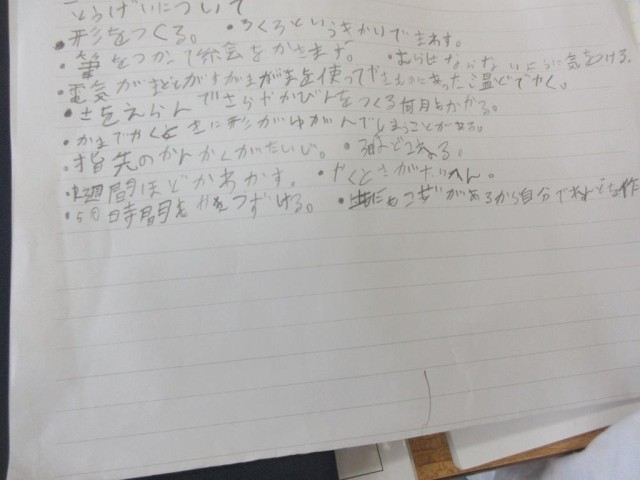 とうげいについて
・形をつくる。 ・ろくろというきかいでまわす。
・筆をつかって絵をかきます。 ・むらにならないように気をつける。
・電気がまとかガスがまがまを使ってやきものにあった温どでやく。
・土をえらんでさらやかびんをつくる何月もかかる。
・かまでやくときに形がゆがんでしまうことがある。
・指先のかんかくがたいじ。 ・3週ど
・1週間ほどかわかす。 ・やくときがたいへん。
・50時間もやきつずける。 ・土にもくせがあるから自分で